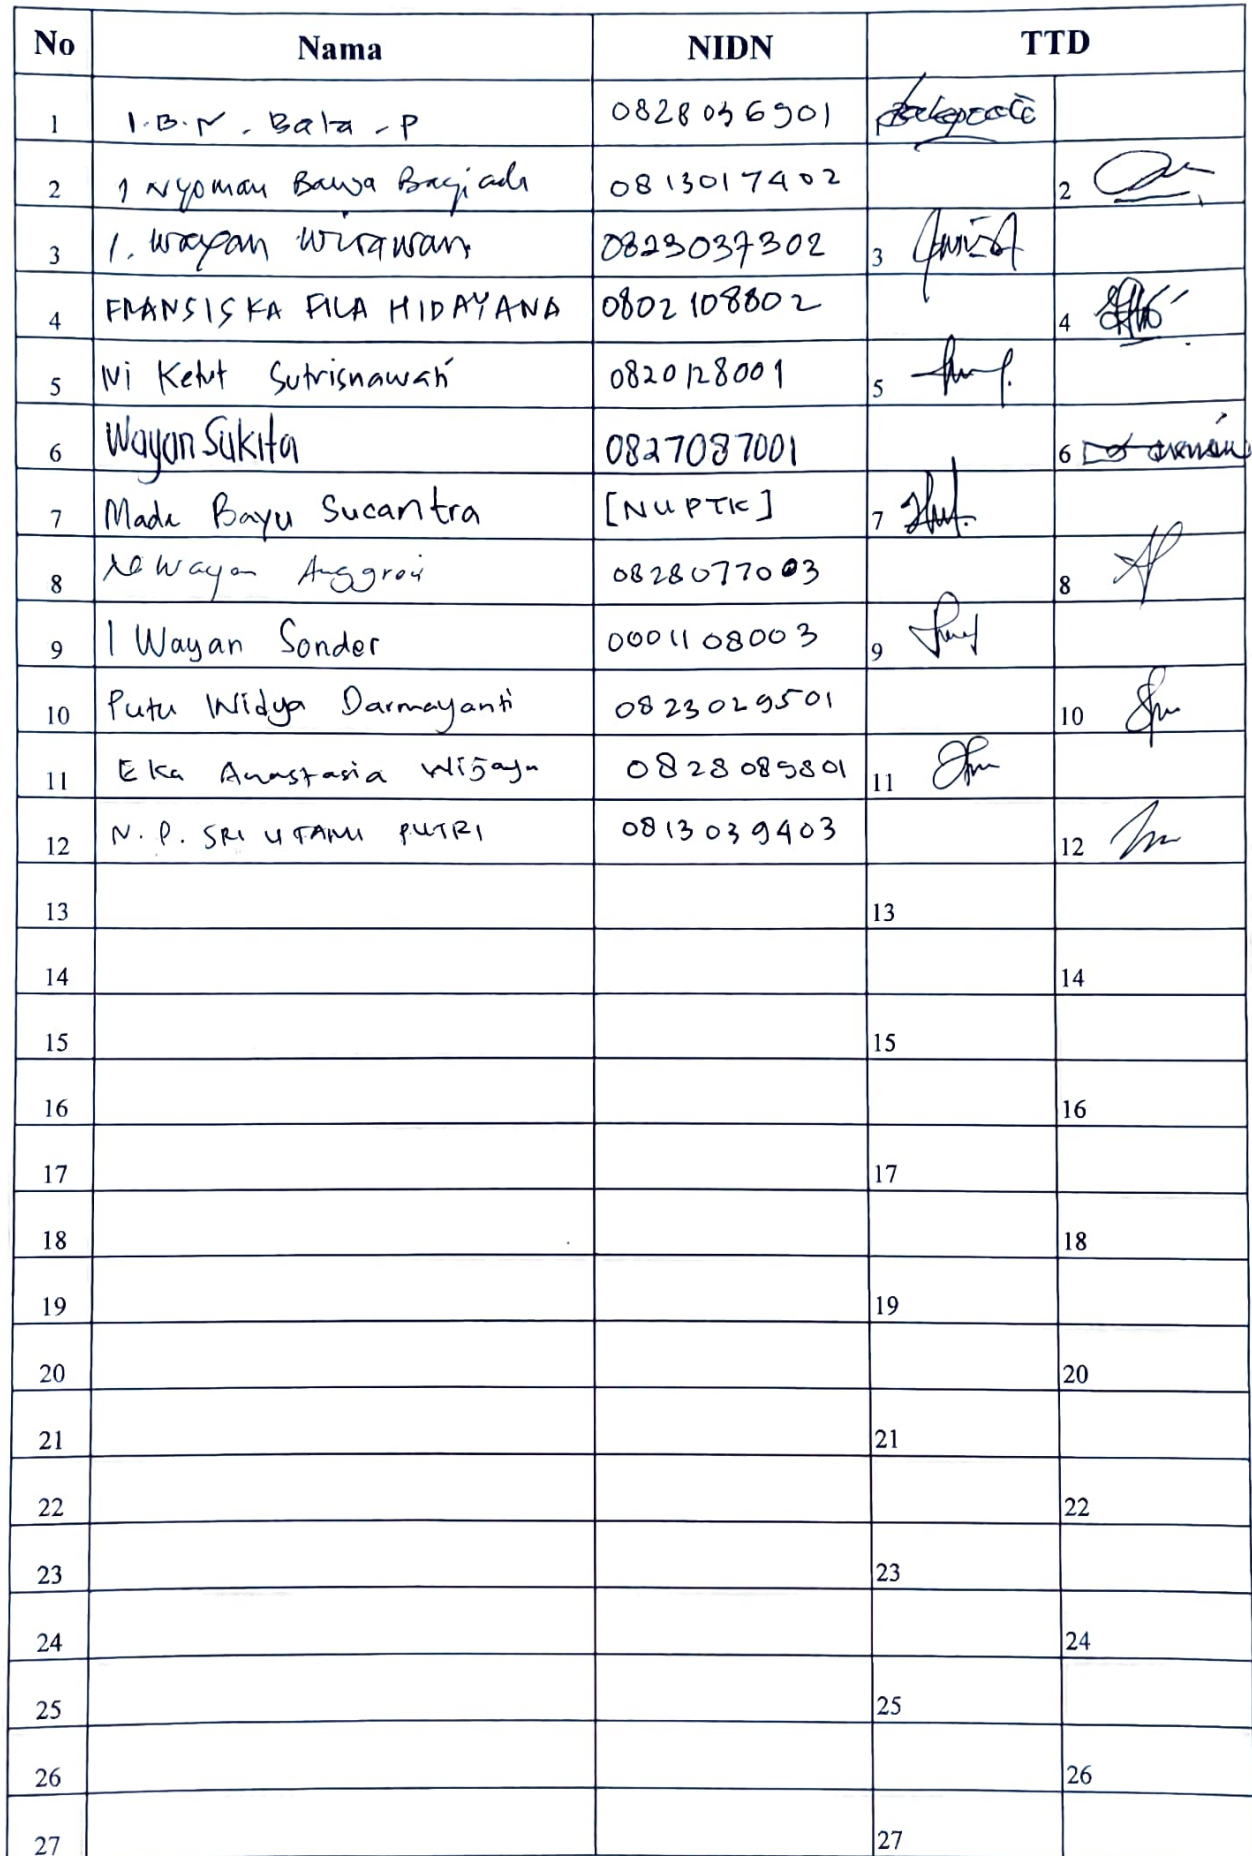 No Nama NIDN TTD
1 I.B.N. Bala. P 0828056901
2 I Nyoman Bawa Bagiada 0813017402 2
3 I. Wayan Wirawan 0823037302 3
4 FRANSISKA FILA HIDAYANA 0802108802 4
5 Ni Ketut Sutrisnawati 0820128001 5
6 Wayan Sukita 0827087001 6
7 Made Bayu Sucantra [NUPTK] 7
8 Ni Wayan Anggreni 0828077003 8
9 I Wayan Sonder 0001108003 9
10 Putu Widya Darmayanti 0823029501 10
11 Eka Anastasia Wijaya 0828089801 11
12 N. P. SRI UTAMI PUTRI 0813039403 12
13 13
14 14
15 15
16 16
17 17
18 18
19 19
20 20
21 21
22 22
23 23
24 24
25 25
26 26
27 27